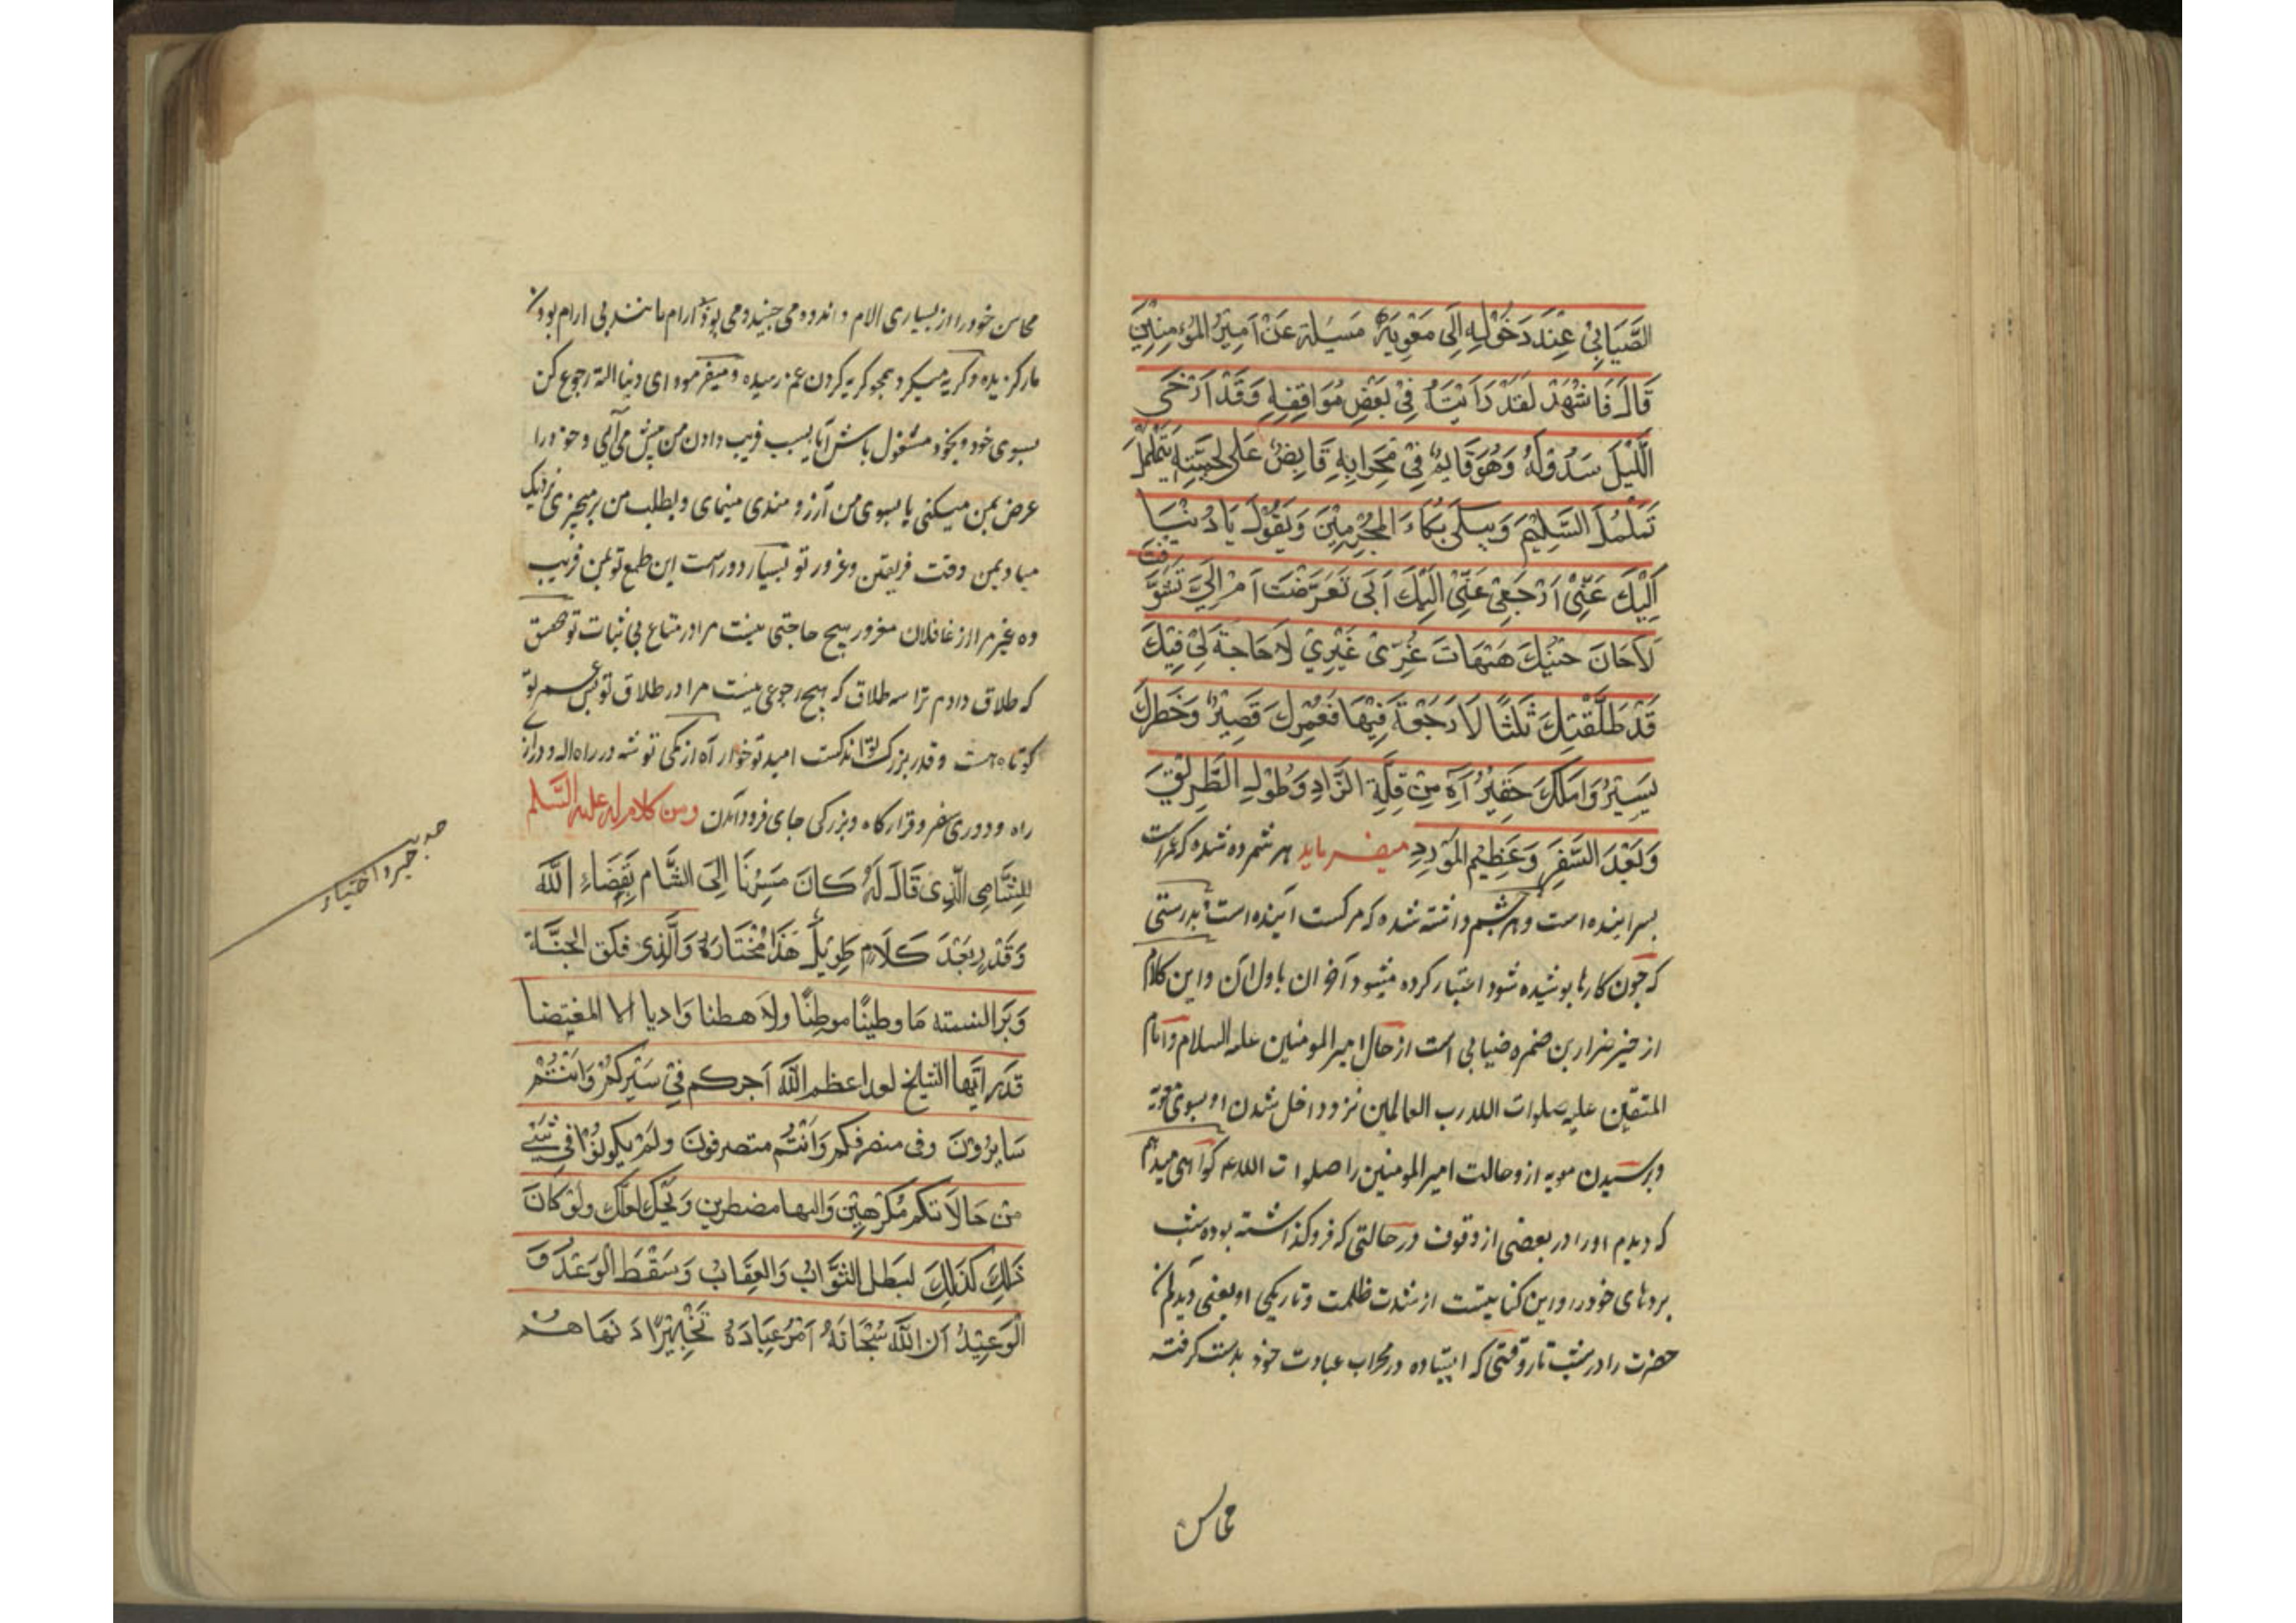 الضَّبَابِيْ عِنْدَ دَخُوْلِهِ اِلَى مَعْوِيَةَ مَسْئلة عَنْ اَمِيْرِ المُؤمِنِيْنَ
قَالَ فَاشْهَدْ لَقَدْ رَاَيْتَهُ فِيْ بَعْضِ مُوَاقِفِهِ وَقَدْ اَرْخَى
اللَّيْلَ سَدُوْلَهُ وَهُوَ قَايِمٌ فِيْ مَحْرَابِهِ قَابِضٌ عَلى لِحيَتِهِ يَتَمَلْمَلُ
تَمَلْمُلَ السَّلِيْمِ وَيَبكى بُكَاءَ المُجْرِمِيْنَ وَيَقُوْلُ يَا دُنْيَا
اِلَيْكَ عَنِّيْ اَرْجَعِيْ عَنِّيْ اِلَيْكَ اَبِى تَعَرَّضْتَ اَمْ اِلَيَّ تَشَوَّقتَ
لاَحَانَ حيْنِكَ هَيْهَاتَ غُرِّى غَيْرِيْ لاَ حَاجَةَ لِيْ فِيْكَ
قَدْ طَلَّقْتُكَ ثَلثًا لاَ رَجْعَةَ فِيْهَا فَعُمْرِكَ قَصِيْرٌ وَخَطَرِكَ
يَسِيْرٌ وَاَمَلَكَ حَقِيْرٌ آهِ مِنْ قِلَّةِ الزَّادِ وَطُوْلِ الطَّرِيْقِ
وَبَعْدَ السَّفَرِ وَعَظِيْمِ المَوْرِدِ ميفرمايد هر شمرده شده كه عمر است
بسر اينده است و هر چشم داشته شده كه مركست آينده است بدرستى
كه چون كارها پوشيده شود اعتبار كرده ميشود آخر ان باول آن واين كلام
از خبر ضرار بن ضمره ضبابى است از حال امير المومنين عليه السلام وامام
المتقين عليه صلوات الله رب العالمين نزد داخل شدن او بسوى معويه
وپرسيدن مويه ازو حالت امير المومنين را صلوات الله عليه كواهى ميدهم
كه ديدم اورا در بعضى از وقوف در حالتى كه فروكذاشته بوده شب
پردهاى خود را واين كنايتست از شدت ظلمت وتاريكى او يعنى ديدم
حضرت را در شب تار وقتى كه ايستاده در محراب عبادت خود بدست كرفته
محاسن
محاسن خود را از بسيارى الام واندوه مى جنبيد ومى پود آرام مانند بى ارام بودن
مار كزيده وكريه ميكرد همچو كريه كردن غم رسيده وميفرمود اى دنيا البته رجوع كن
بسوى خود وبخود مشغول باش آيا بسبب فريب دادن من پيش مى آيى وخود را
عرض بمن ميكنى يا بسوى من آرزو مندى مينماى وبطلب من برميخيزى نزديك
مباد بمن وقت فريفتن وغرور تو بسيار دور است اين طمع تو بمن فريب
ده غير مرا از غافلان مغرور هيچ حاجتى نيست مرا در متاع بى ثبات تو
كه طلاق دادم ترا سه طلاق كه هيچ رجوعى نيست مرا در طلاق تو پس عمر تو
كوتاهست وقدر بزرك تو اندكست اميد تو خوار آه از كمى توشه در راه اله ودرازى
راه ودورى سفر وقراركاه وبزركى جاى فرودآمدن ومن كلام له عليه السَّلم
لِلشَّامِى الَّذِى قَالَ لَهُ كَانَ مَسِيْرنَا اِلَى الشَّام بِقَضَاءِ اللَّه
وَقَدَرٍ بَعْدَ كَلَامٍ طَوِيْلٍ هَذَا مُخْتَارَهُ وَالَّذِى فَلَقَ الحَبَّة
وَبَرَا النسمة مَا وطينًا موطِنًا ولاَ هبطنا وَاديا الا بقضا
قَدَر اَيّهَا الشيخ لقد اعظم اللَّه اَجركم فِيْ سَيْرِكُمْ وَانْتُمْ
سَايِرُوْنَ وفى منصرفكم وَاَنْتُم متصرفونَ ولَمْ يكونوْا فى شَئ
مِنْ حَالاَتكم مُكْرَهِيْن وَاليها مضطرين وَيْحَكَ لعلَّك ولَوْ كَانَ
ذَلِكَ كَذَلِكَ لبَطل الثوَّابُ وَالعِقَابُ وَسَقَطَ الوَعْدُ وَ
الْوَعِيْدُ اَن اللَّهَ سُبْحَانَهُ اَمَرَ عِبَادَهُ تَخْيِيْرًا وَ نَهَاهم